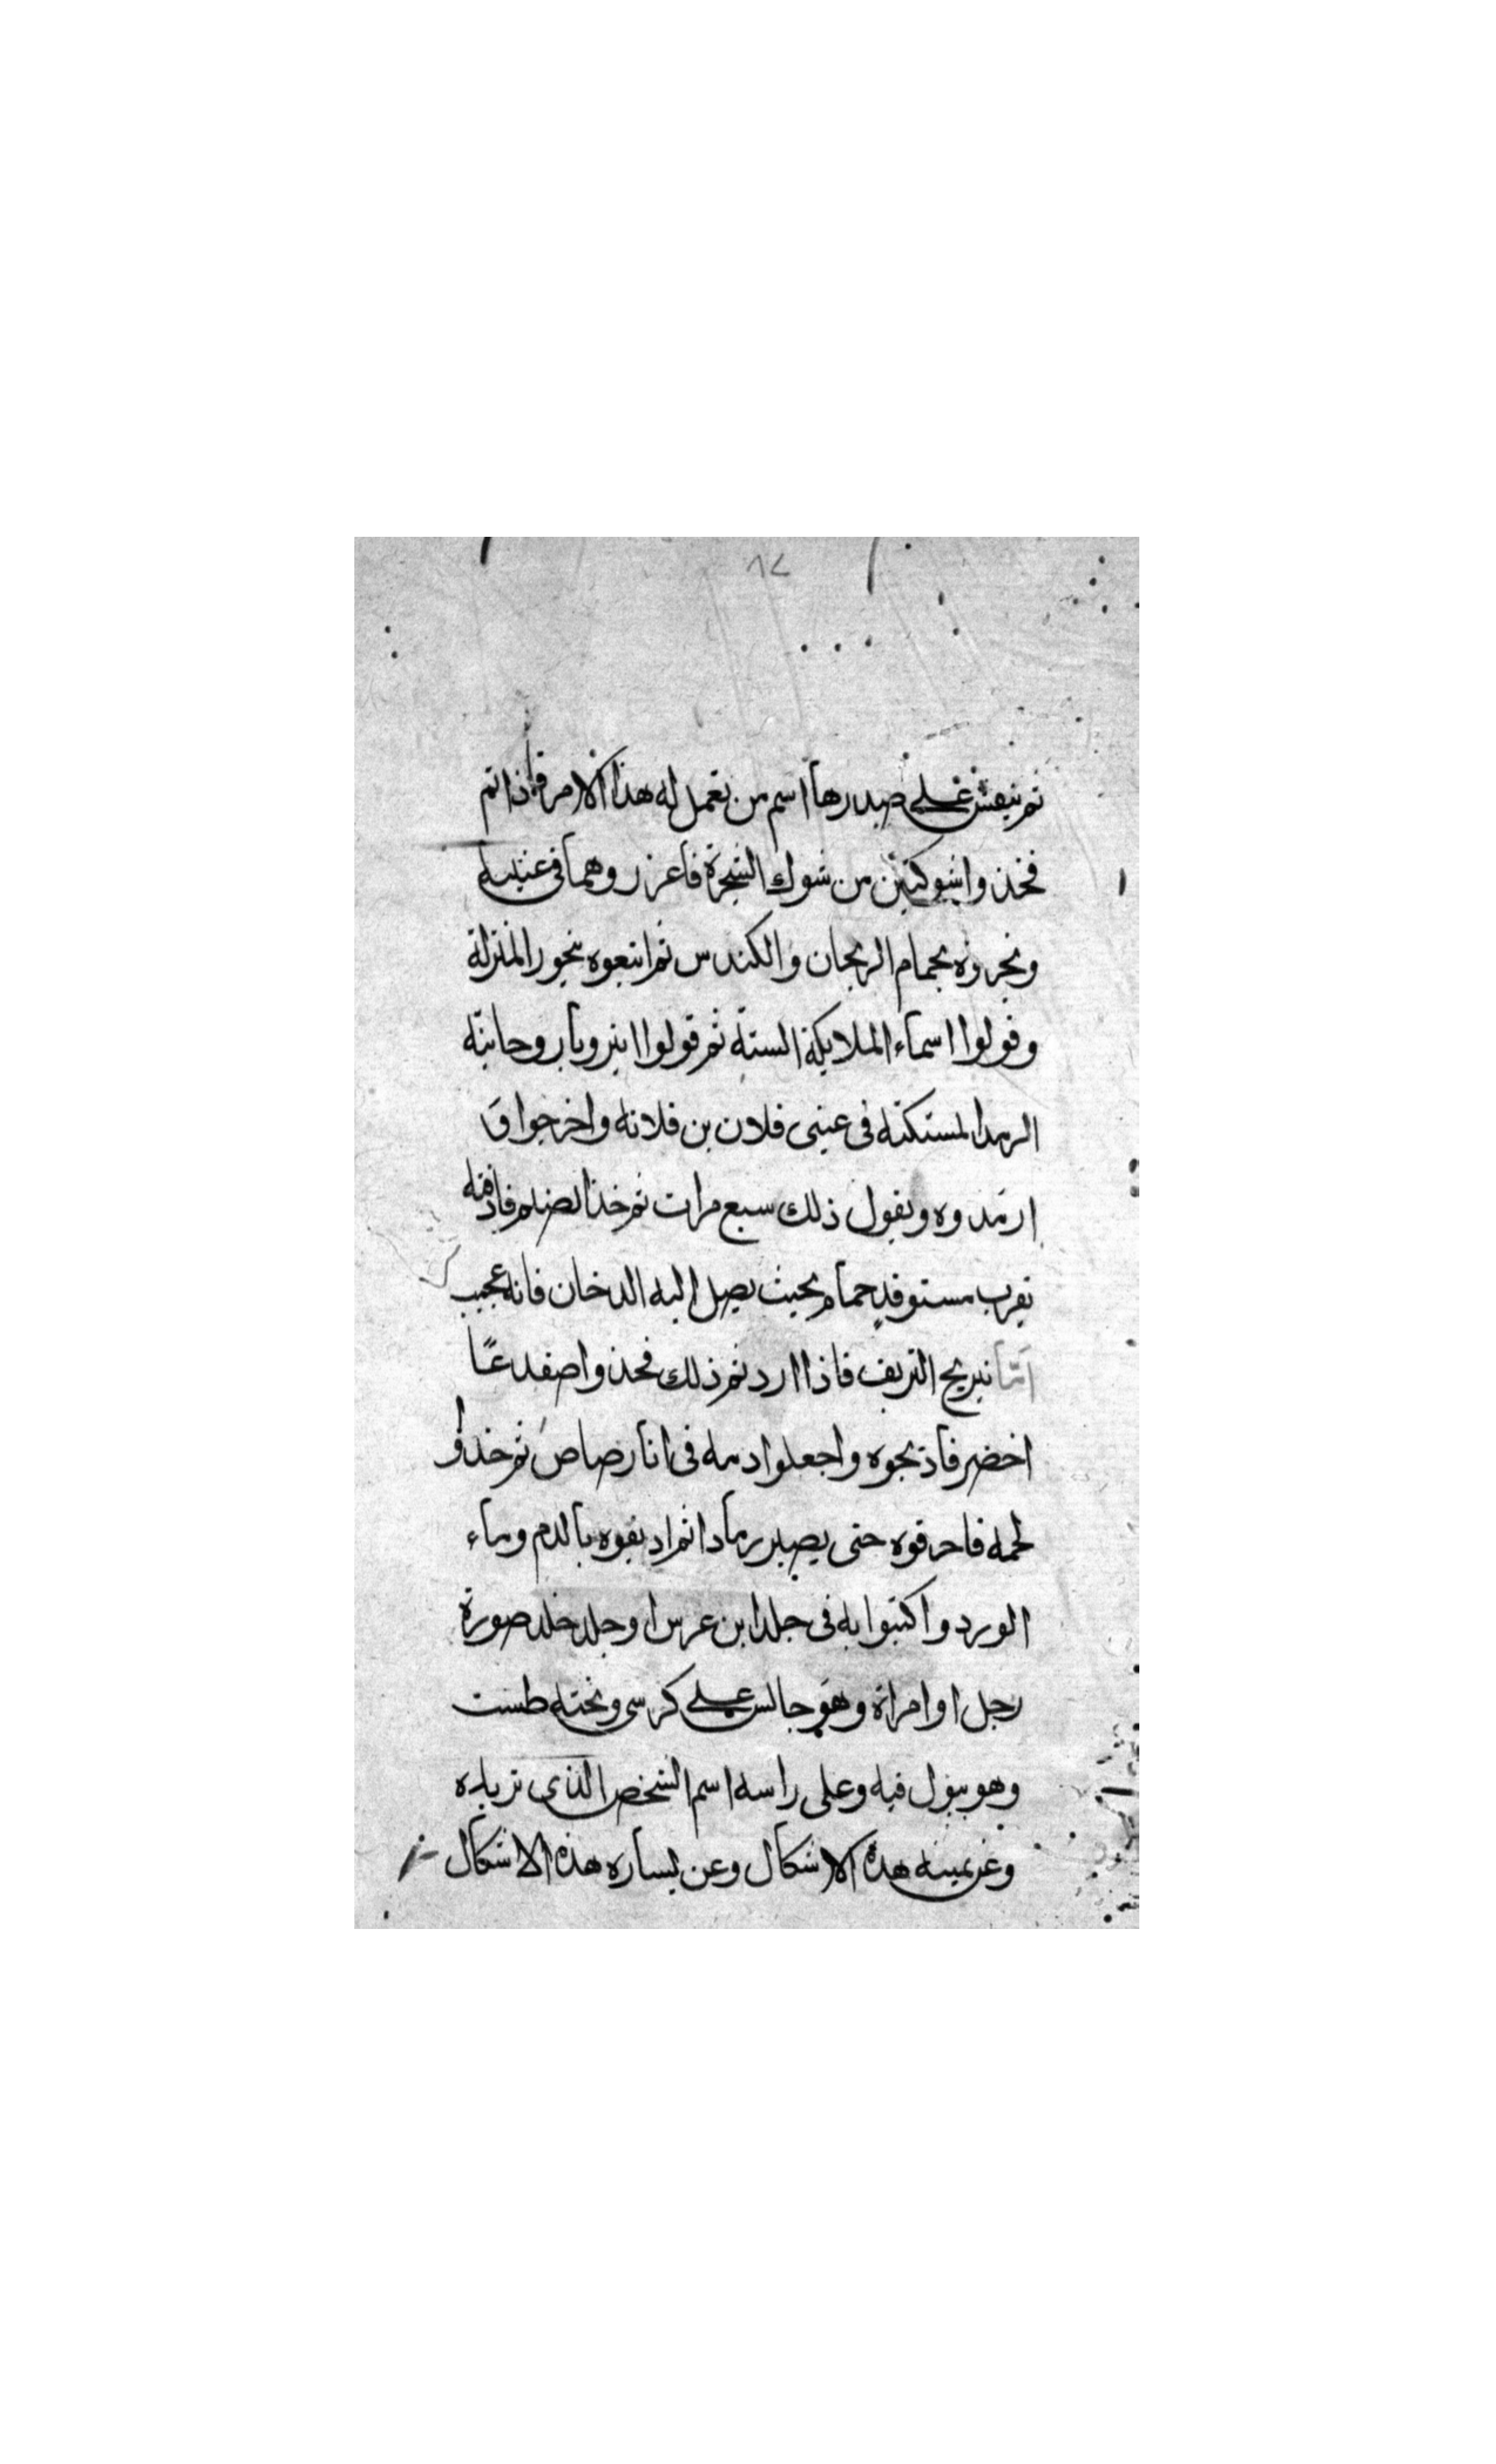 ٨٢
ثم ينقش على صدرها اسم من تعمل له هذا الامر فاذا تم
فخذوا شوكتين من شوك الشجرة فاغرزوهما في عينيه
وبخروه بحمام الريحان والكندس ثم اتبعوه بخور المنزلة
وقولوا اسماء الملايكة الستة ثم قولوا انزلوا يا روحانية
الرمد المستكنه في عيني فلان بن فلانه واخرجوا و
ارمدوه ويقول ذلك سبع مرات ثم خذ الصنم فادفنه
بقرب مستوقد حمام بحيث يصل اليه الدخان فانه عجيب
اما نيريج النزيف فاذا اردتم ذلك فخذوا ضفدعًا
اخضر فاذبحوه واجعلوا دمه في انا رصاص ثم خذوا
لحمه فاحرقوه حتى يصير رمادا ثم اديفوه بالدم وماء
الورد واكتبوا به في جلد ابن عرس او جلد خلد صورة
رجل او امراة وهو جالس على كرسي وتحته طست
وهو يبول فيه وعلى راسه اسم الشخص الذي تريده
وعن يمينه هذه الاشكال وعن يساره هذه الاشكال